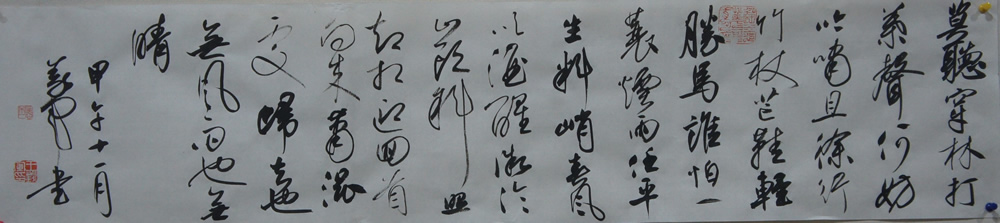 莫聽穿林打
葉聲何妨
吟嘯且徐行
竹杖芒鞋輕
勝馬誰怕一
蓑煙雨任平
生料峭春風
吹酒醒微冷
山頭斜照
卻相迎回首
向來蕭瑟
處歸去也
無風雨也無
晴
甲午十一月
书